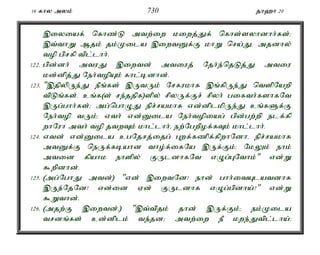 16 கால அலம் 730 தாஹா 20
இலையைக் கொண்டு அவற்றை மறைத்துக் கொள்ளலானார்கள்;
இவ்வாறு ஆதம் தம்முடைய இறைவனுக்கு மாறு செய்து, அதனால்
வழி பிசகி விட்டார்.
122. பின்னர் அவரது இறைவன் அவரைத் தேர்ந்தெடுத்து அவரை
மன்னித்து நேர்வழியும் காட்டினான்.
123. "இதிலிருந்து நீங்கள் இருவரும் சேகரமாக இங்கிருந்து வெளியேறி
விடுங்கள். உங்க(ள் சந்ததிக)ளில் சிலருக்குச் சிலர் பகைவர்களாகவே
இருப்பார்கள்; அப்பொழுது நிச்சயமாக என்னிடமிருந்து உங்களுக்கு
நேர்வழி வரும்; எவர் என்னுடைய நேர்வழியைப் பின்பற்றி நடக்கி
றாரோ அவர் வழி தவறவும் மாட்டார், நற்பேறிழக்கவும் மாட்டார்.
124. எவன் என்னுடைய உபதேசத்தைப் புறக்கணிக்கிறானோ, நிச்சயமாக
அவனுக்கு நெருக்கடியான வாழ்க்கையே இருக்கும்; மேலும் நாம்
அவனை கியாம நாளில் குருடனாகவே எழுப்புவோம்" என்று
கூறினான்.
125. (அப்போது அவன்) "என் இறைவனே! நான் பார்வையுடையவனாக
இருந்தேனே! என்னை ஏன் குருடனாக எழுப்பினாய்?" என்று
கூறுவான்.
126. (அதற்கு இறைவன்,) "இவ்விதம் தான் இருக்கும்; நம்முடைய
வசனங்கள் உன்னிடம் வந்தன; அவற்றை நீ மறந்துவிட்டாய்;